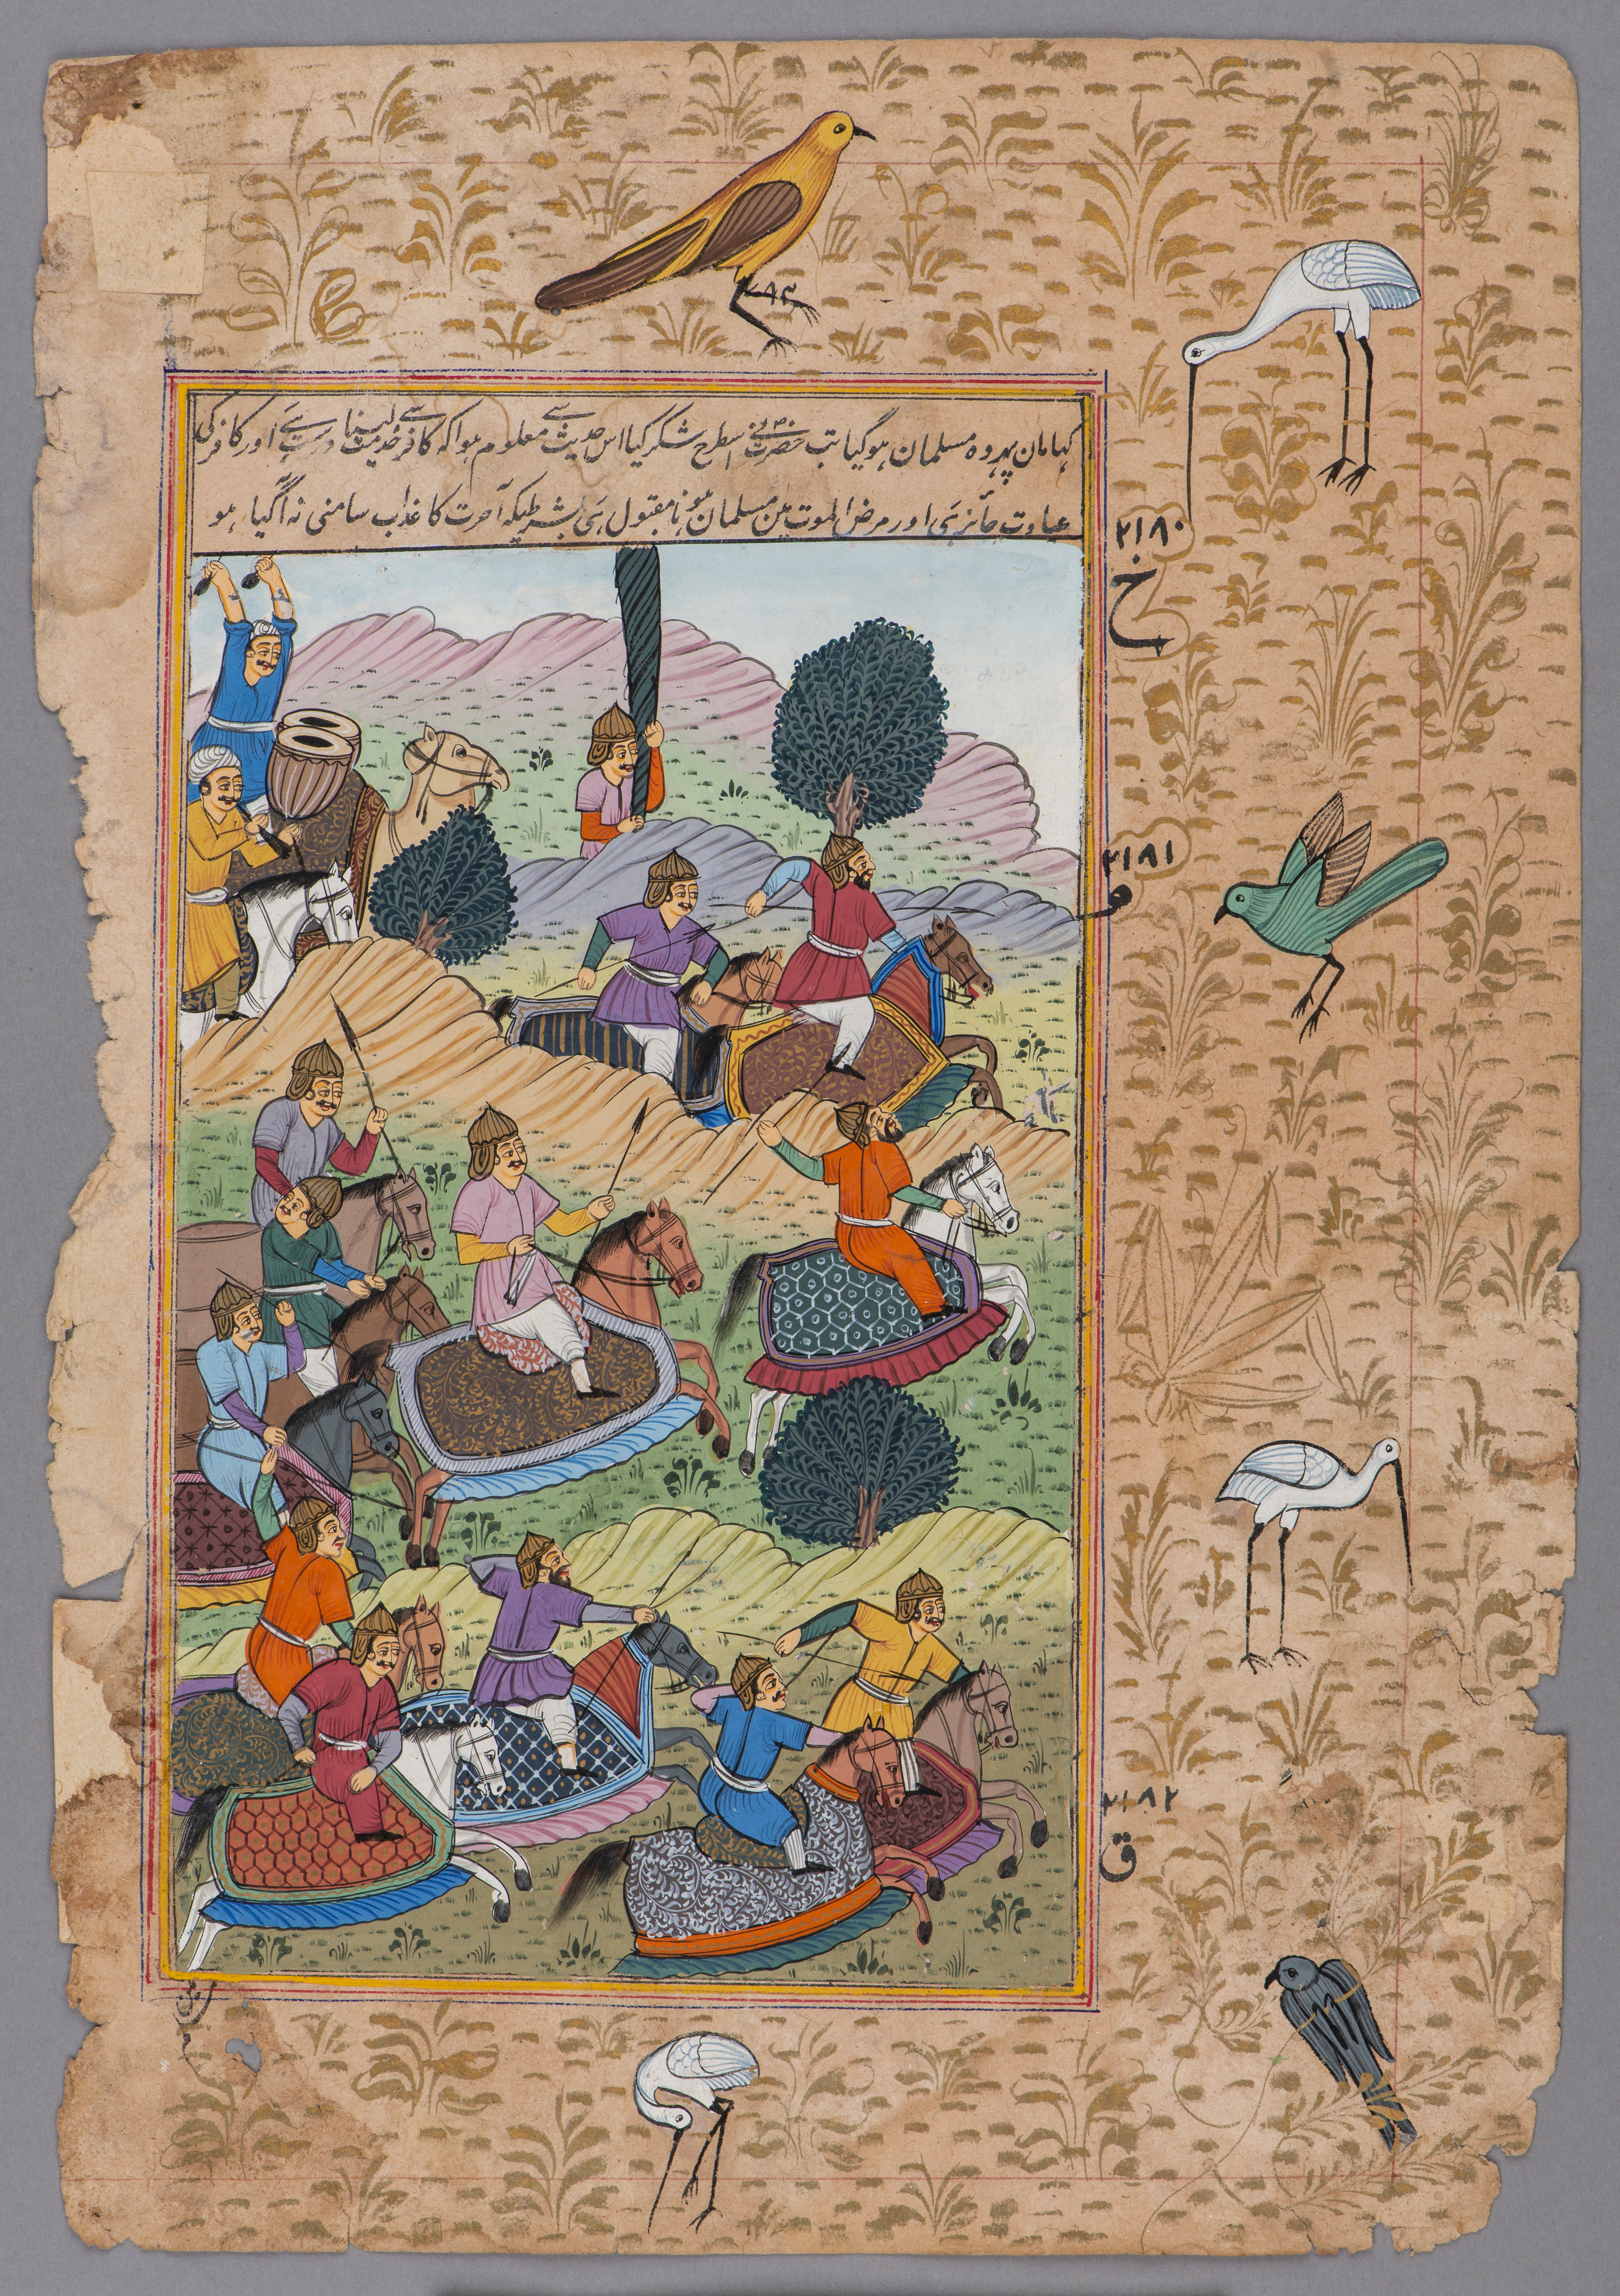 کہا مان پہر وہ مسلمان ہوگیا تب حضرت نے اسطرح شکر کیا اس حدیث سے معلوم ہوا کہ کافر سے خدمت لینا درست ہے اور کافر کی
عیادت جائز ہی اور مرض الموت مین مسلمان ہونا مقبول ہی بشرطیکہ آخرت کا عذاب سامنی نہ آگیا ہو
۲۱۸۰
خ
۲۱۸۱
م
۲۱۸۲
ق